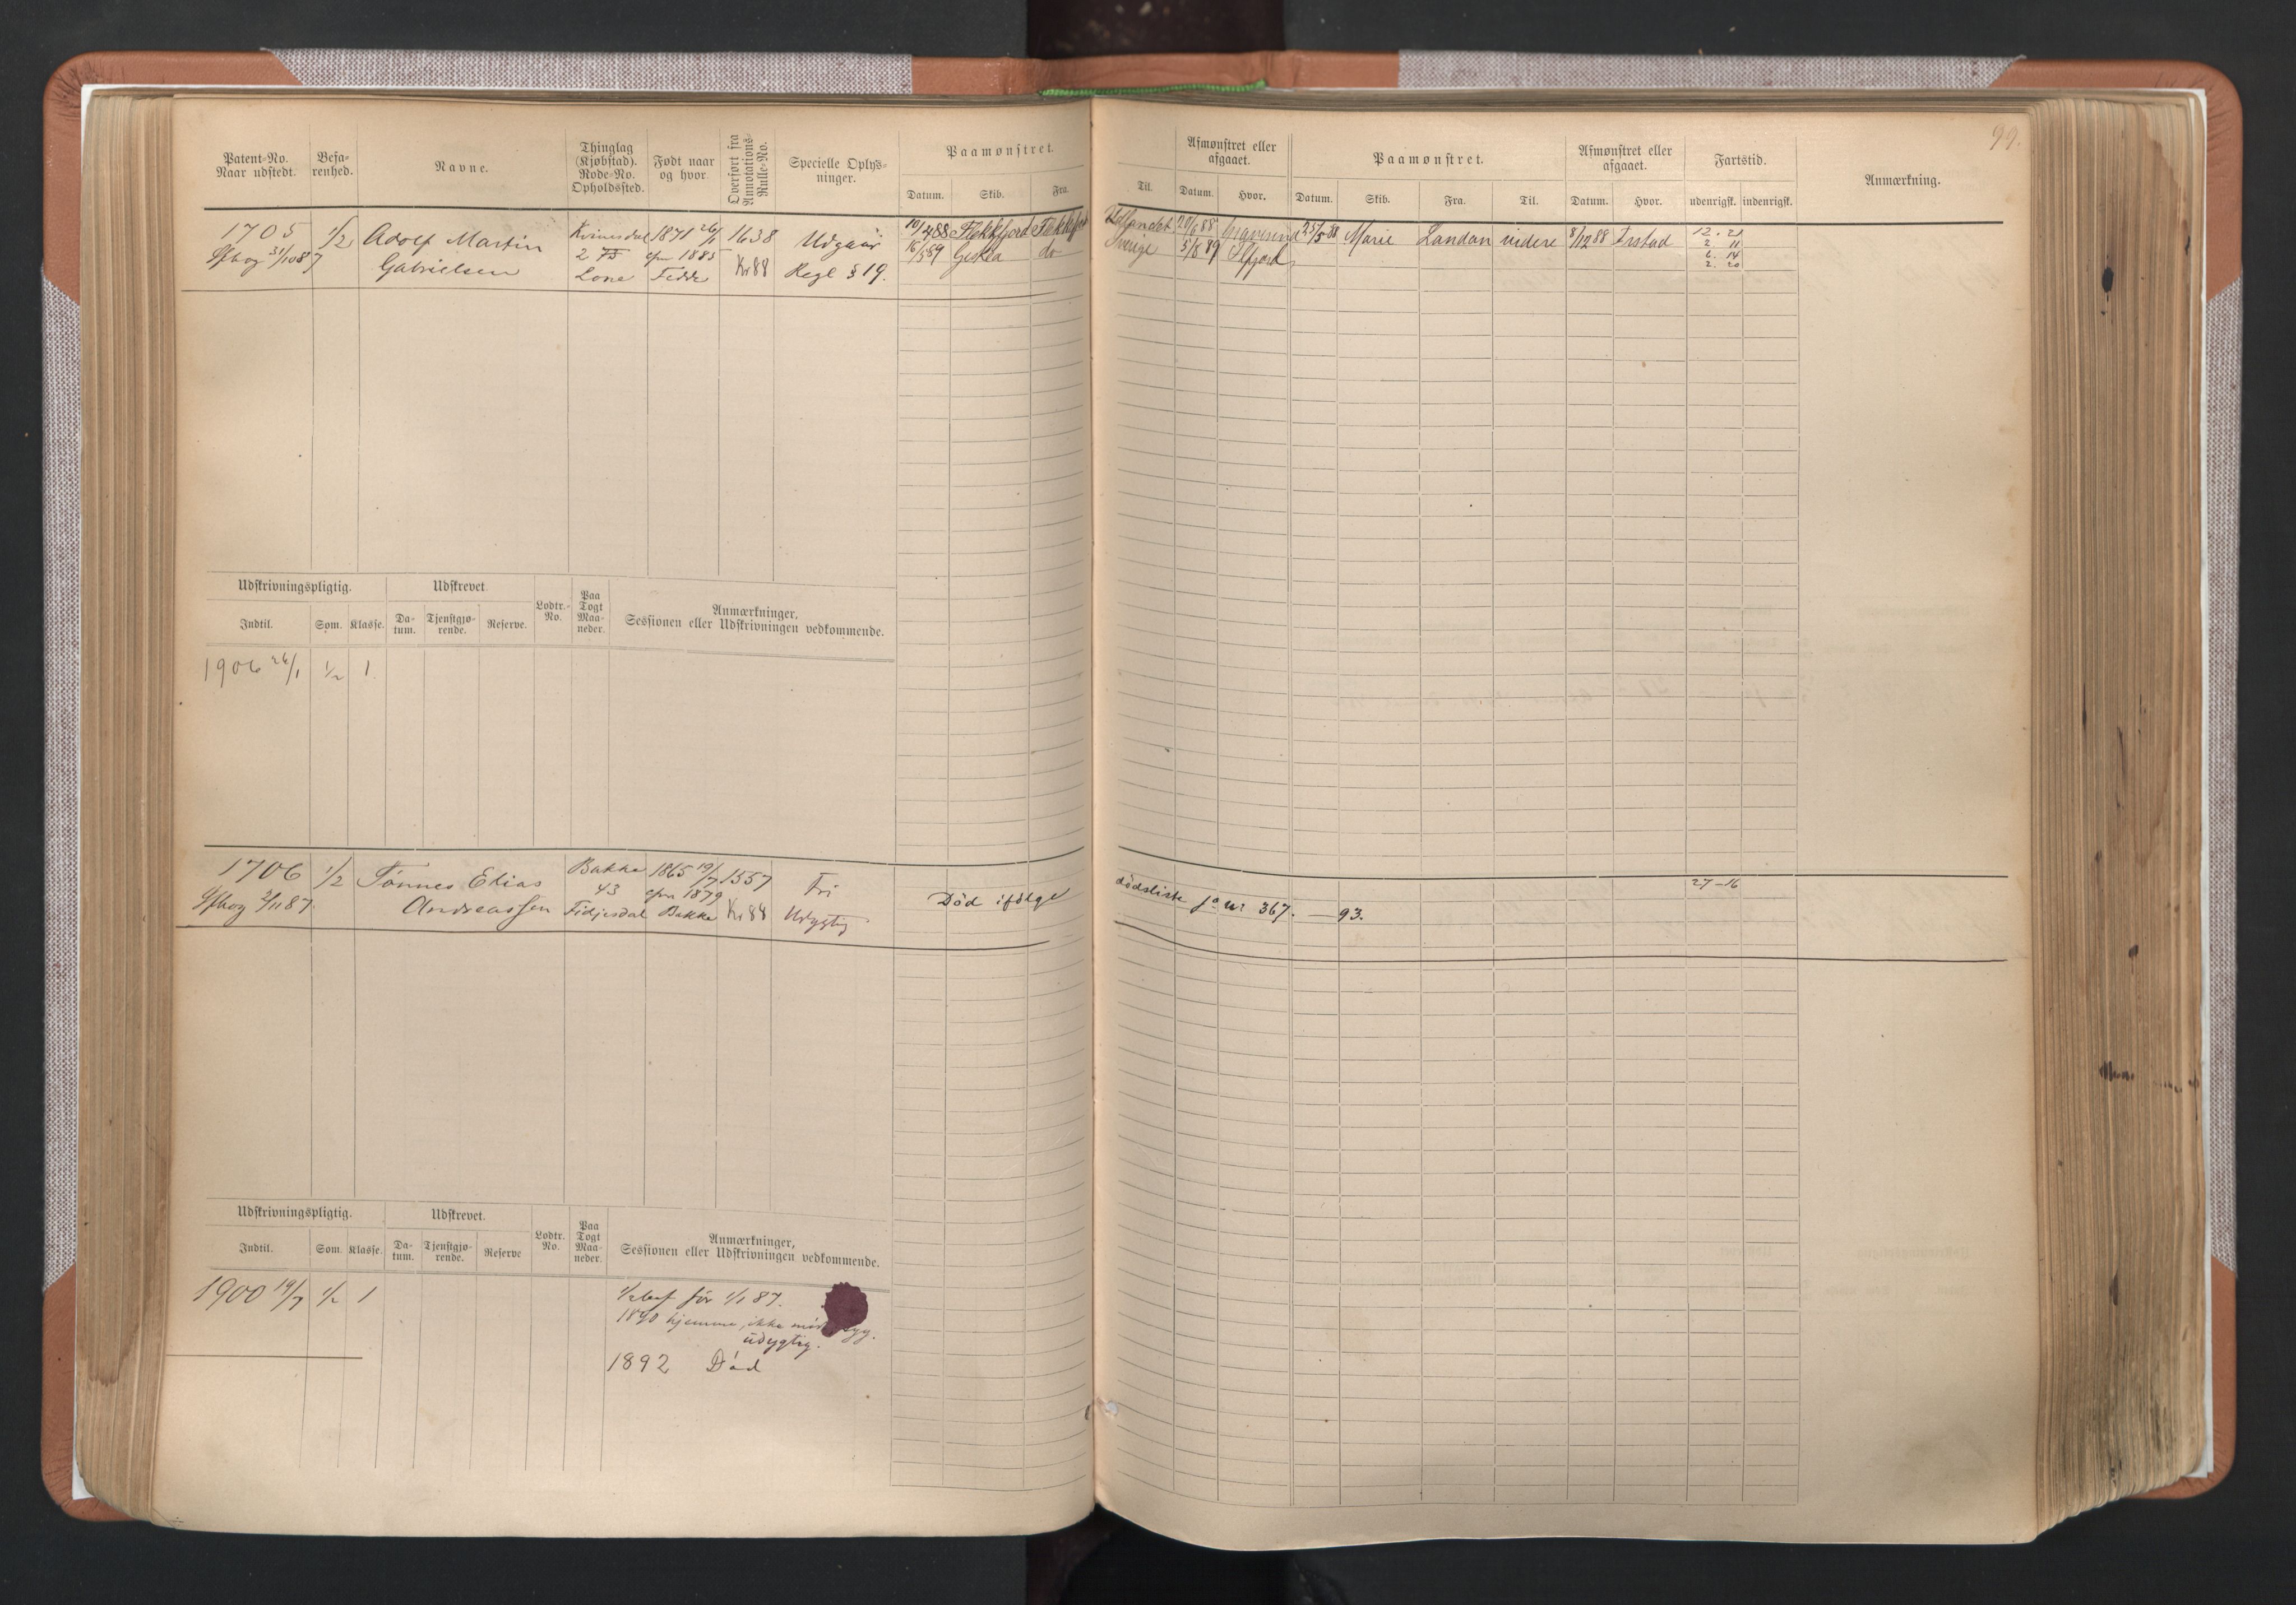 99.
Patent-No. Naar udstedt. Befa-renhed. Navne. Thinglag (Kjøbstad). Rode-No. Opholdssted. Født naar og hvor. Overført fra Annotations-Rulle-No. Specielle Oplys-ninger. Paamønstret. Datum. Skib. Fra.
Til. Afmønstret eller afgaaet. Datum. Hvor. Paamønstret. Datum. Skib. Fra. Til. Afmønstret eller afgaaet. Datum. Hvor. Fartstid. udenrigsk. indenrigsk. Anmærkning.
1705 1/2 Adolf Martin Kvinesdal 1871 26/1 1638 Udgaar 19/4 88 Flekkefjord Udlandet 20/6 88 Gravesend 25/5 88 Marie London videre 8/12 88 12. 21
31/10 87 Gabrielsen 2 cfm 1885 Kr 88 Regl § 19. 15/5 89 do Sverige 5/8 89 2 11
Fedde 6. 14
2. 20
Udskrivningspligtig. Udskrevet. Lodtr.-No. Paa Togt Maa-neder. Anmærkninger, Sessionen eller Udskrivningen vedkommende.
Indtil. Søm. Klasse. Da-tum. Tjenstgjø-rende. Reserve.
1906 26/1 1/2 1
1706 1/2 Tønnes Elias Bakke 1865 19/7 1557 Fri Död ifølge dødsliste jo nr 367. — 93. 27-16
2/11 87. Andreassen 43 cfm 1879 Kr 88 Udygtig
Fidjesdal Bakke
Udskrivningspligtig. Udskrevet. Lodtr. No. Paa Togt Maa-neder. Anmærkninger, Sessionen eller Udskrivningen vedkommende.
Indtil. Søm. Klasse. Da-tum. Tjenstgjø-rende. Reserve
1900 19/7 1/2 1 1/2 bef før 1/1 87.
1890 hjemme, ikke
udygtig.
1892 Död